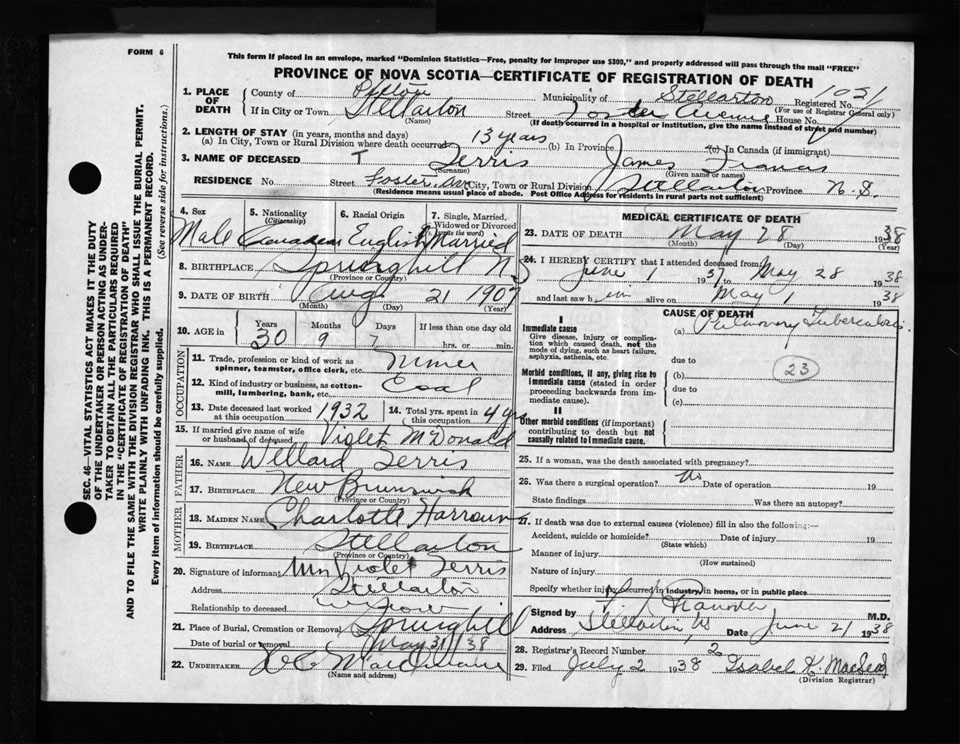 FORM 6
This form if placed in an envelope, marked "Dominion Statistics—Free, penalty for Improper use $300," and properly addressed will pass through the mail "FREE"
PROVINCE OF NOVA SCOTIA—CERTIFICATE OF REGISTRATION OF DEATH
SEC. 46—VITAL STATISTICS ACT MAKES IT THE DUTY
OF THE UNDERTAKER OR PERSON ACTING AS UNDER-
TAKER TO OBTAIN ALL THE PARTICULARS REQUIRED
IN THE "CERTIFICATE OF REGISTRATION OF DEATH"
AND TO FILE THE SAME WITH THE DIVISION REGISTRAR WHO SHALL ISSUE THE BURIAL PERMIT.
WRITE PLAINLY WITH UNFADING INK. THIS IS A PERMANENT RECORD.
Every item of information should be carefully supplied. (See reverse side for instructions.)
1. PLACE OF DEATH County of Pictou Municipality of Stellarton Registered No. 1021
(For use of Registrar General only)
If in City or Town Stellarton (Name) Street Foster Avenue House No.
(If death occurred in a hospital or institution, give the name instead of street and number)
2. LENGTH OF STAY (in years, months and days)
(a) In City, Town or Rural Division where death occurred 13 years (b) In Province (c) In Canada (if immigrant)
3. NAME OF DECEASED T Terris James Francis
(Surname) (Given name or names)
RESIDENCE No. Street Foster Ave City, Town or Rural Division Stellarton Province N.S.
(Residence means usual place of abode. Post Office Address for residents in rural parts not sufficient)
4. Sex Male
5. Nationality (Citizenship) Canadian
6. Racial Origin English
7. Single, Married, Widowed or Divorced (write the word) Married
8. BIRTHPLACE Springhill NS
(Province or Country)
9. DATE OF BIRTH Aug 21 1907
(Month) (Day) (Year)
10. AGE in Years 30 Months 9 Days 7 If less than one day old hrs. or min.
OCCUPATION
11. Trade, profession or kind of work as spinner, teamster, office clerk, etc. Miner
12. Kind of industry or business, as cotton-mill, lumbering, bank, etc. Coal
13. Date deceased last worked at this occupation 1932
14. Total yrs. spent in this occupation 4 yrs
15. If married give name of wife or husband of deceased Violet McDonald
FATHER
16. NAME Willard Terris
17. BIRTHPLACE New Brunswick
(Province or Country)
MOTHER
18. MAIDEN NAME Charlotte Harroun
19. BIRTHPLACE Stellarton
(Province or Country)
20. Signature of informant Mrs Violet Terris
Address Stellarton
Relationship to deceased widow
21. Place of Burial, Cremation or Removal Springhill
Date of burial or removal May 31/38
22. UNDERTAKER
(Name and address)
MEDICAL CERTIFICATE OF DEATH
23. DATE OF DEATH May 28 1938
(Month) (Day) (Year)
24. I HEREBY CERTIFY that I attended deceased from
June 1 1937 May 28 38
and last saw him alive on May 1 1938
CAUSE OF DEATH
I
Immediate cause
Give disease, injury or complication which caused death, not the mode of dying, such as heart failure, asphyxia, asthenia, etc.
(a) Pulmonary Tuberculosis.
due to
Morbid conditions, if any, giving rise to immediate cause (stated in order proceeding backwards from immediate cause).
(b) 23
due to
(c)
II
Other morbid conditions (if important) contributing to death but not causally related to immediate cause.
25. If a woman, was the death associated with pregnancy?
26. Was there a surgical operation? No Date of operation 19
State findings Was there an autopsy?
27. If death was due to external causes (violence) fill in also the following:—
Accident, suicide or homicide? Date of injury 19
(State which)
Manner of injury
(How sustained)
Nature of injury
Specify whether injury occurred in industry, in home, or in public place
Signed by M.D.
Address Stellarton NS Date June 21 1938
28. Registrar's Record Number 2
29. Filed July 2 1938 Isabel K. MacLeod
(Division Registrar)